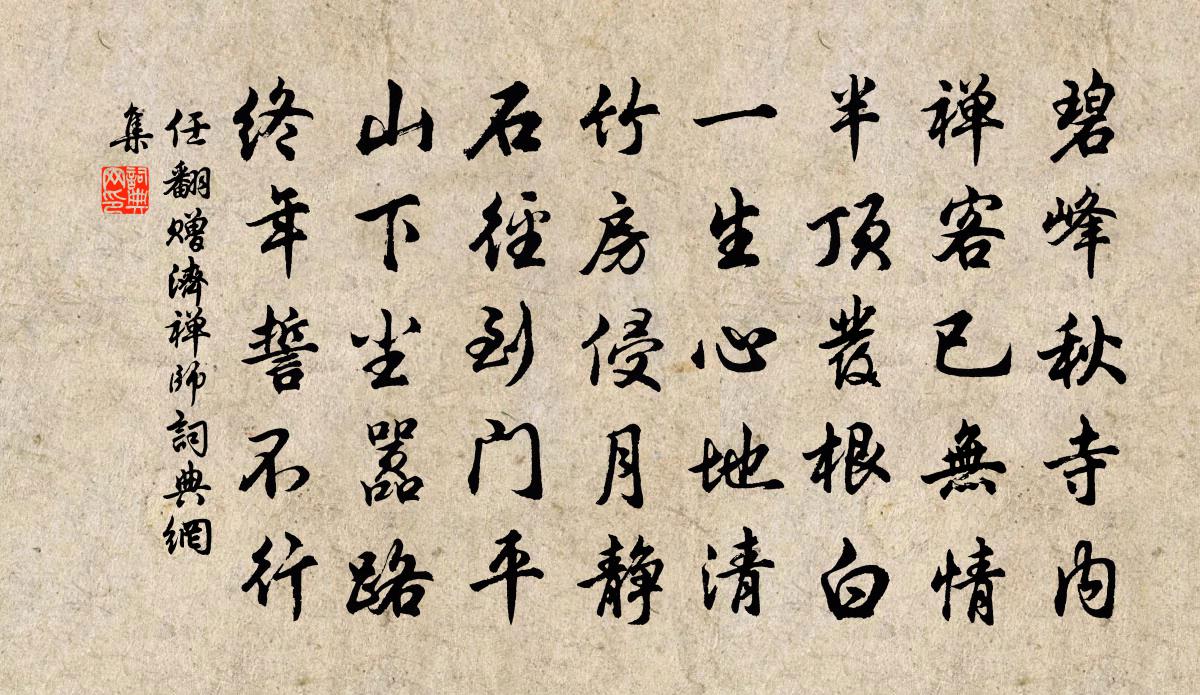 碧峰秋寺内
禅客已無情
半顶發根白
一生心地清
竹房侵月静
石徑到门平
山下尘嚣路
终年誓不行
任翻赠濟禅師詞典網
集
詞典
网印